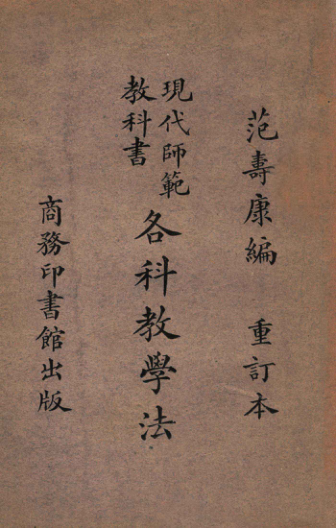 范壽康編 重訂本
現代師範
教科書
各科教學法
商務印書館出版